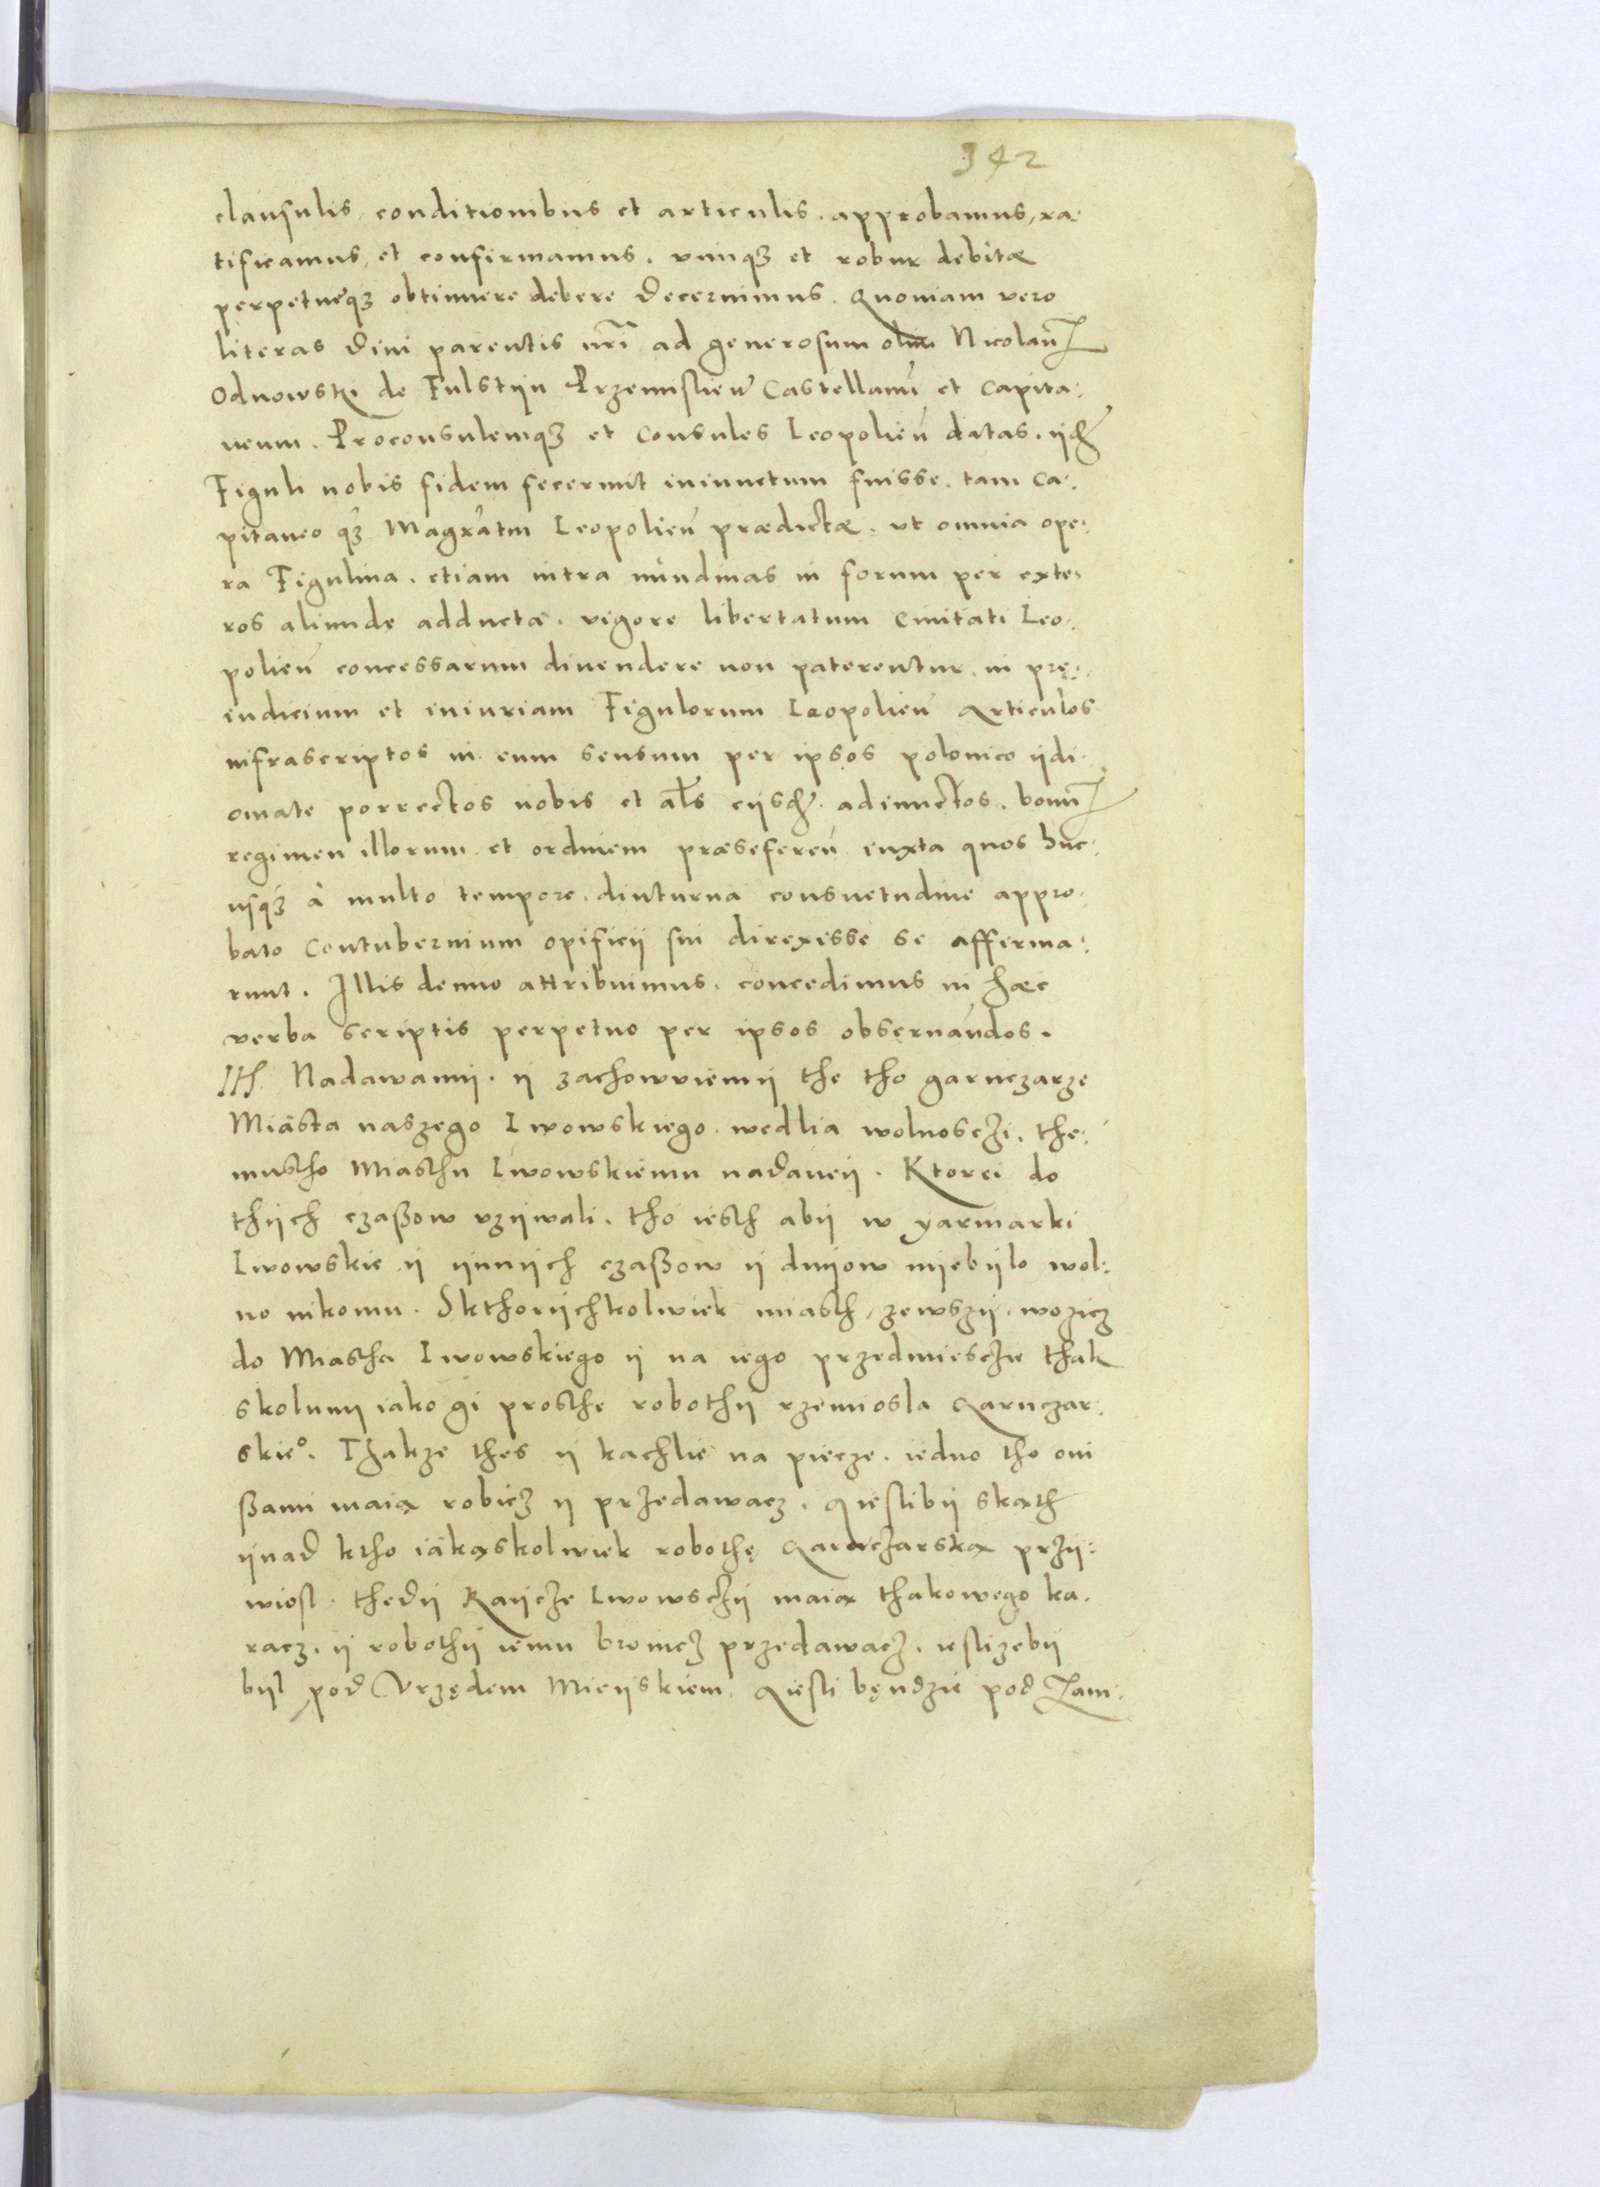 342
clausulis, conditionibus et articulis. approbamus, ra:
tificamus, et confirmamus. vimq3 et robur debitæ
perpetueq3 obtinere debere decernimus. Quoniam vero
literas Divi parentis nrĩ ad generosum olim Nicolaũ
Odnowski de Fulstijn Przemislieñ Castellanũ et Capita:
neum. Proconsulemq3 et Consules Leopolieñ datas. ijd
Figuli nobis fidem fecerunt iniunctum fuisse. tam Ca:
pitaneo q3 Magratui Leopolieñ prædictæ. vt omnia ope:
ra Figulina. etiam intra nundinas in forum per exte:
ros aliunde adductæ. vigore libertatum Civitati Leo:
polieñ concessarum divendere non paterentur. in prę:
iudicium et iniuriam Figulorum Leopolieñ Articulos
infrascriptos in eum sensum per ipsos polonico ijdi:
omate porrectos nobis et als eijsd. adiunctos. bonũ
regimen illorum et ordinem præsefereñ iuxta quos huc:
usq3 à multo tempore. diuturna consuetudine appro:
bato Contubernium opificij sui direxisse se afferma:
runt. Illis denuo attribuimus. concedimus in hæc
verba scriptis perpetuo per ipsos observandos.
Ith. Nadawamij. ij zachowviemij the tho garnczarze
Miàsta naszego Lwowskiego. wedlia wolnosczi. the:
mustho Miasthu Lwowskiemu nadaneij. Ktorei do
thijch czaßow vzijwali. tho iesth abij w yarmarki
Lwowskie ij ijnnijch czaßow ij dnijow niebijlo wol:
no nikomu. Skthorijchkolwiek miasth, zewszij. wozicz
do Miastha Lwowskiego ij na iego przedmiesczie thak
skolumij iako gi prosthe robothij rzemiosla Garnczar:
skie°. Thakze thes ij kachlie na piecze. iedno tho oni
ßami maią robicz ij przedawacz. Gieslibij skąth
ijnad ktho iàkąskolwiek robothę Garnczarską przij:
wiosl. thedij Raijcze Lwowsczij maią thakowego ka:
racz. ij robothij iemu bronicz przedawacz. ieslizebij
bijl pod Vrzędem Mieijskiem. Giesli bęndzie pod Zam: